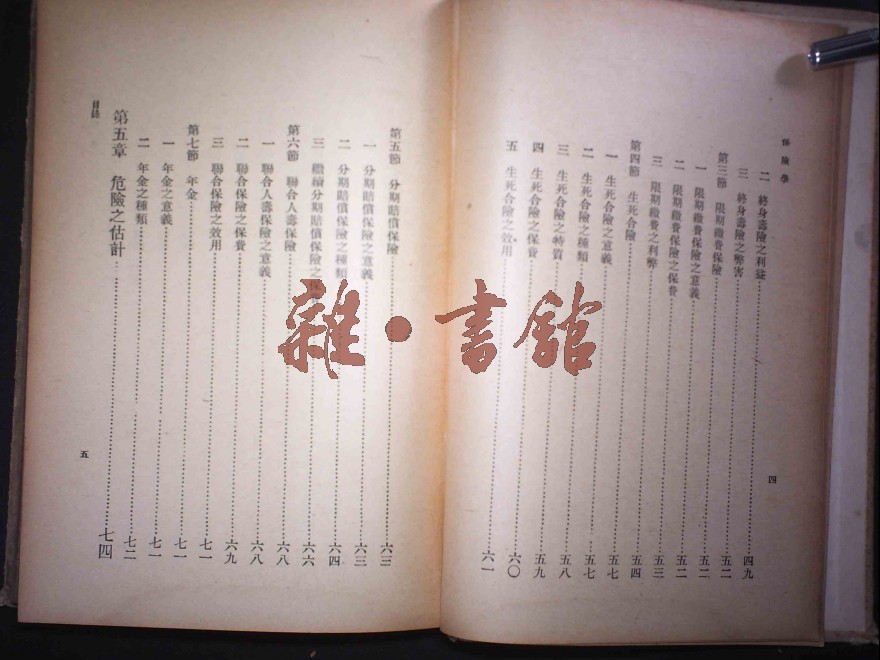 保險學
二 終身壽險之利益……四九
三 終身壽險之弊害……五二
第三節 限期繳費保險……五二
一 限期繳費保險之意義……五二
二 限期繳費保險之保費……五三
三 限期繳費之利弊……五四
第四節 生死合險……五七
一 生死合險之意義……五七
二 生死合險之種類……五八
三 生死合險之特質……五九
四 生死合險之保費……六〇
五 生死合險之效用……六一
四
第五節 分期賠償保險……六三
一 分期賠償保險之意義……六三
二 分期賠償保險之種類……六四
三 繼續分期賠償保險之保費……六六
第六節 聯合人壽保險……六八
一 聯合人壽保險之意義……六八
二 聯合保險之保費……六九
三 聯合保險之效用……七一
第七節 年金……七一
一 年金之意義……七一
二 年金之種類……七二
第五章 危險之估計……七四
目錄
五
雜·書館